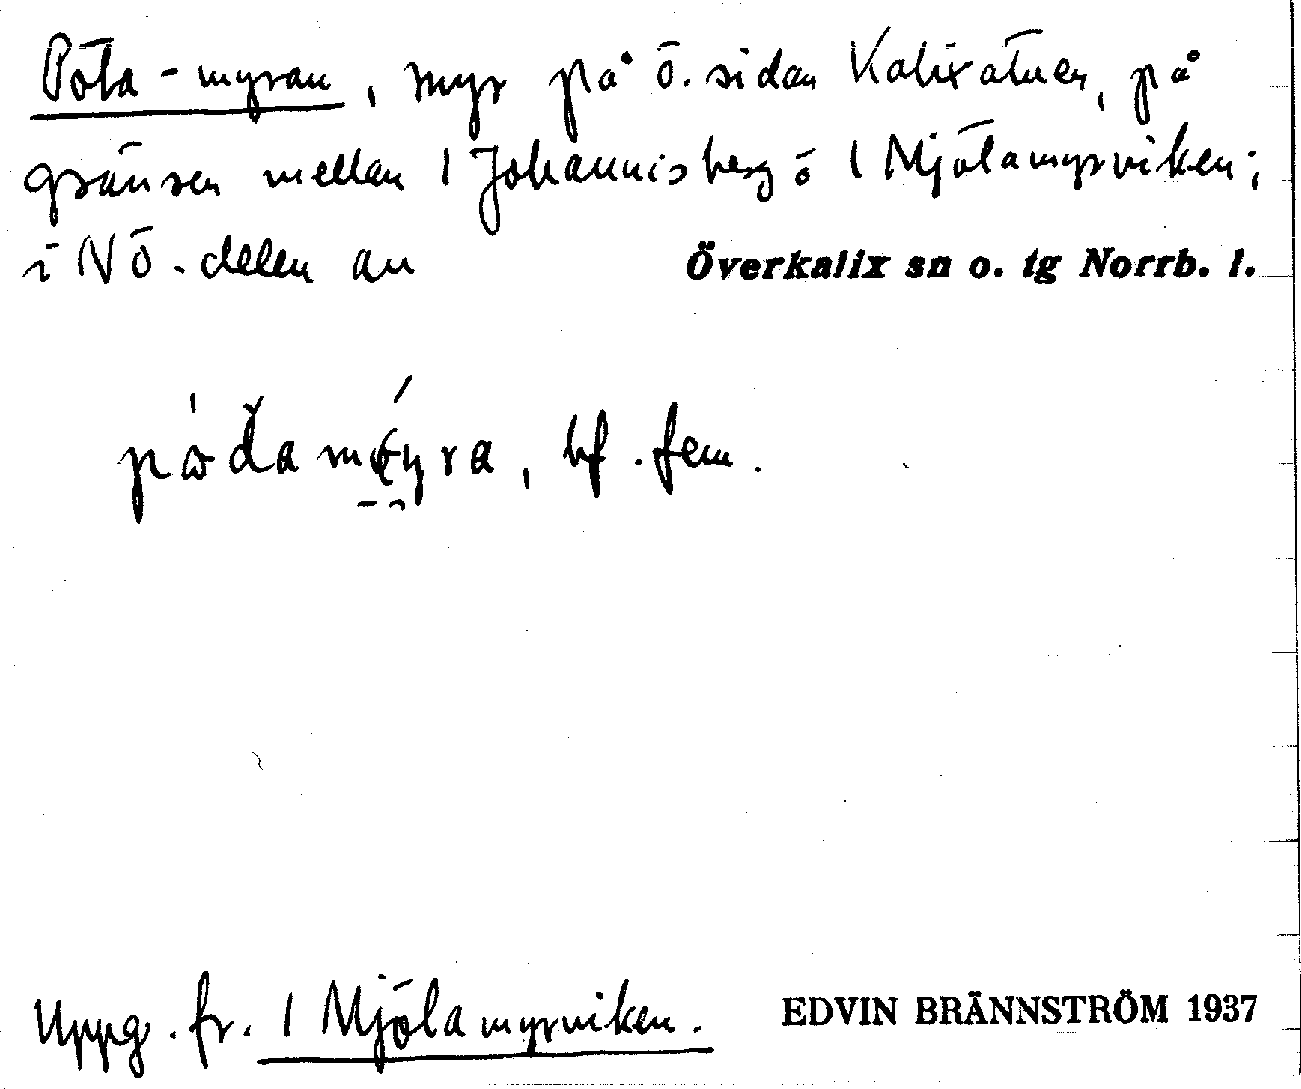 Pöta-myran, myr på ö. sidan Kalixälven, på
gränsen mellan 1 Johannisberg o 1 Mjölamyrviken;
i NÖ. delen av
Överkalix sn o. tg Norrb. l.
bf. fem.
Uppg. fr. 1 Mjölamyrviken.
EDVIN BRÄNNSTRÖM 1937